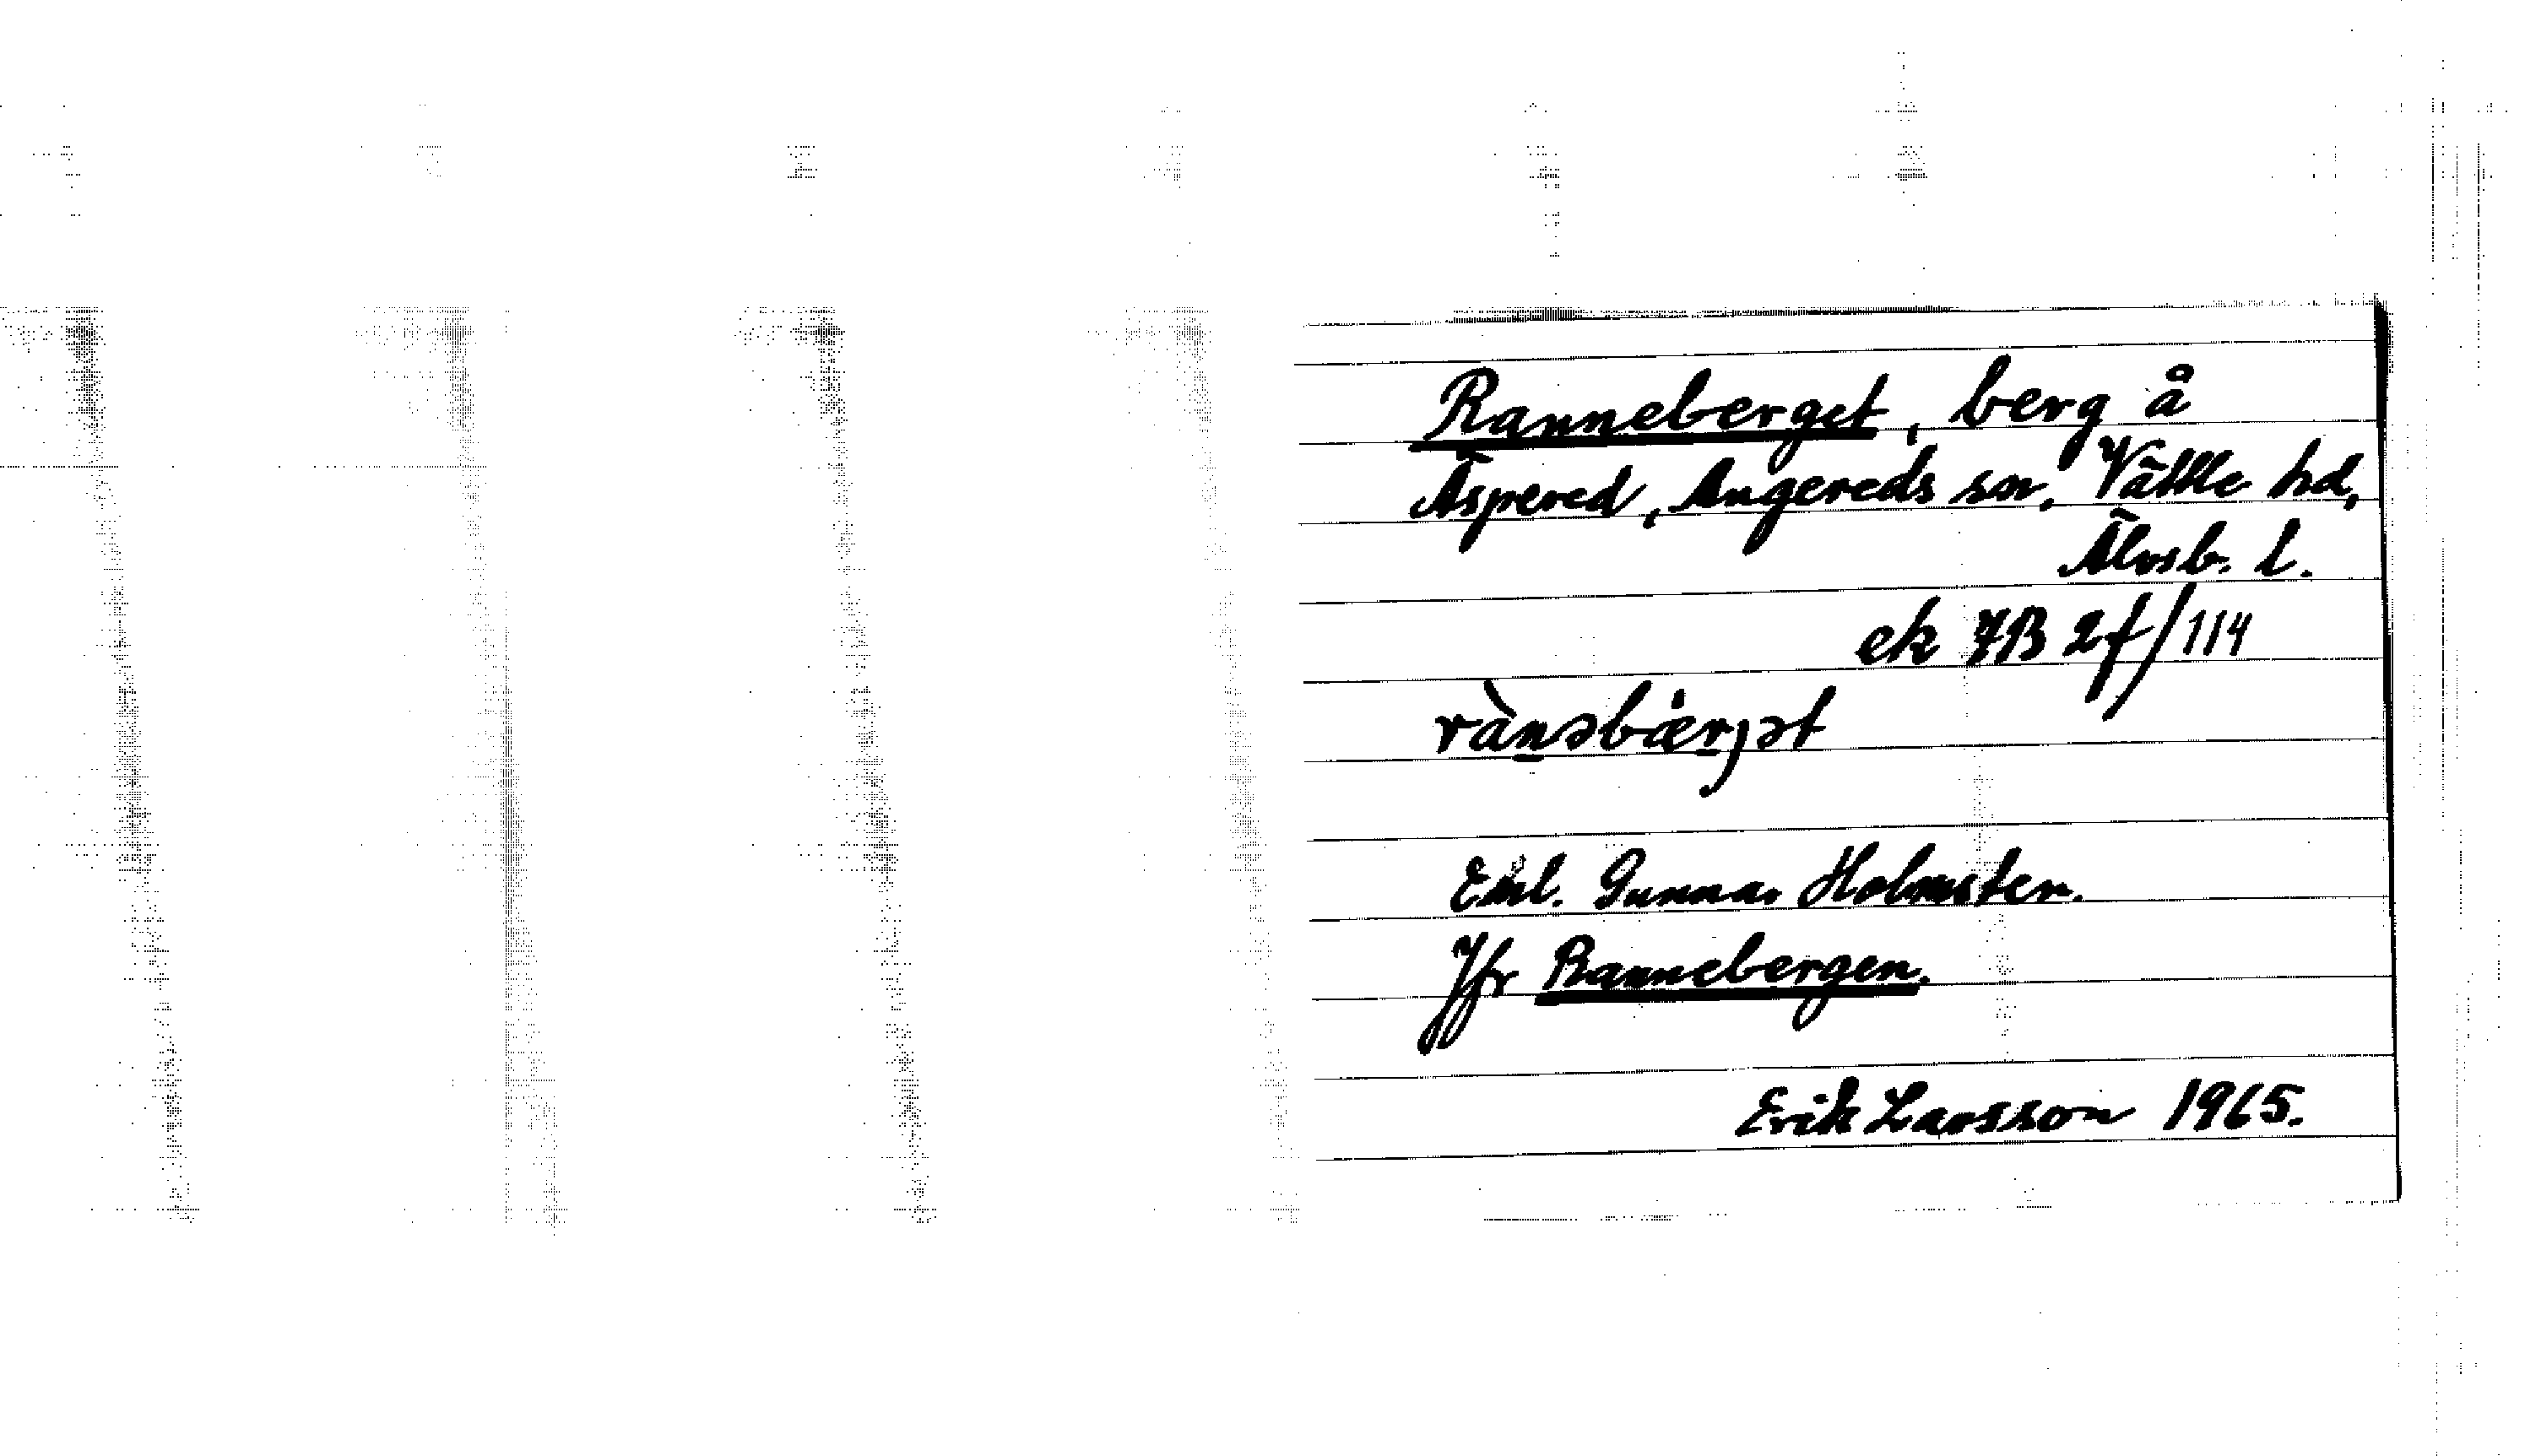 Ranneberget, berg å
Äspered, Angereds sn, Vättle hd,
Älvsb. l.
ek 7B 2f/114
rànəbæ̀rjət
Enl. Gunnar Holmsten.
Jfr Rannebergen.
Erik Larsson 1965.